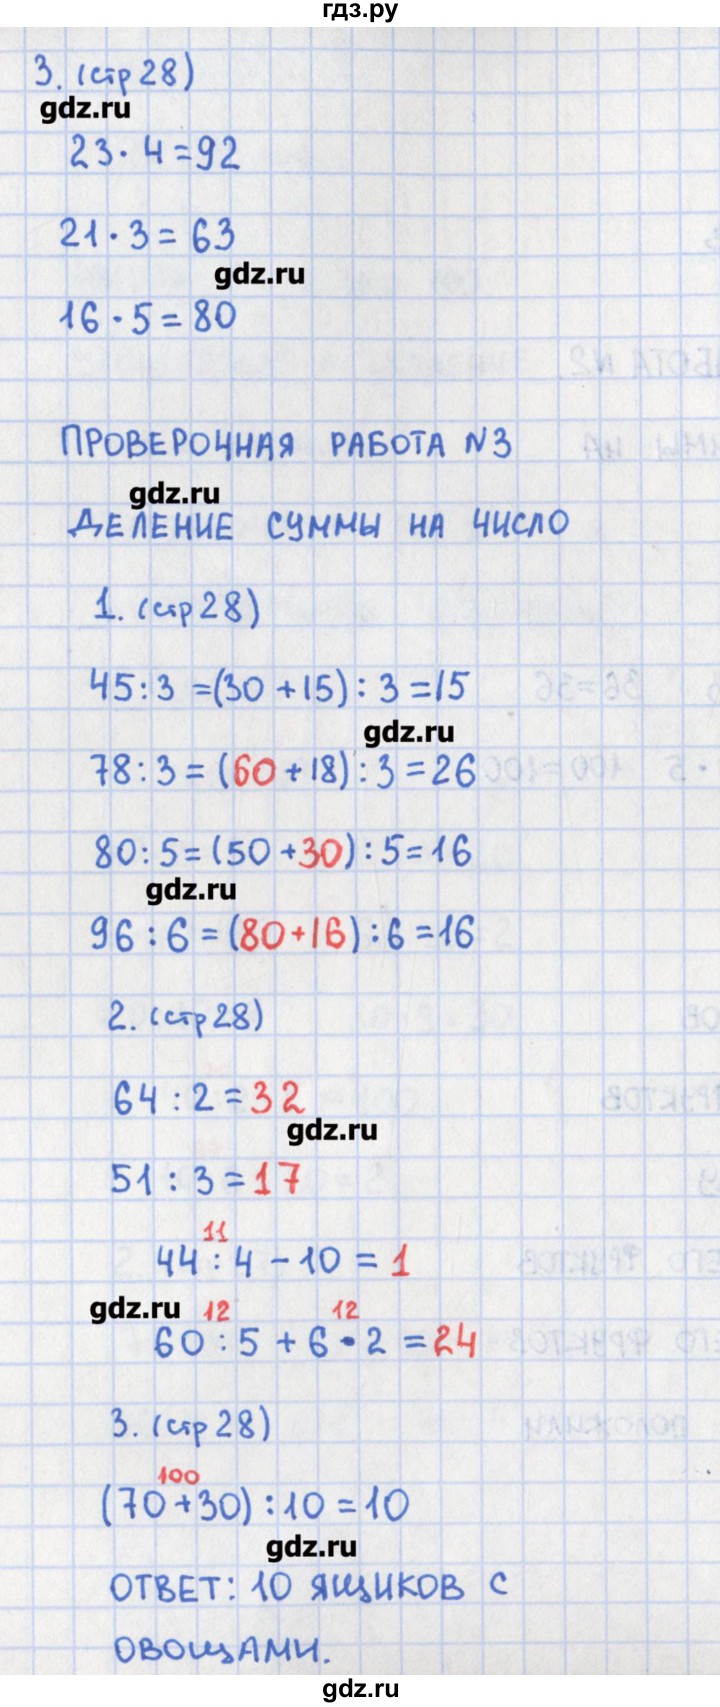 гдз.ру
3. (стр 28)
gdz.ru
23 · 4 = 92
21 · 3 = 63
gdz.ru
16 · 5 = 80
ПРОВЕРОЧНАЯ РАБОТА N3
gdz.ru
ДЕЛЕНИЕ СУММЫ НА ЧИСЛО
1. (стр 28)
45 : 3 = (30 + 15) : 3 = 15
gdz.ru
78 : 3 = (60 + 18) : 3 = 26
80 : 5 = (50 + 30) : 5 = 16
gdz.ru
96 : 6 = (80 + 16) : 6 = 16
2. (стр 28)
64 : 2 = 32
gdz.ru
51 : 3 = 17
11
44 : 4 - 10 = 1
gdz.ru
12 12
60 : 5 + 6 · 2 = 24
3. (стр 28)
100
(70 + 30) : 10 = 10
gdz.ru
ОТВЕТ: 10 ЯЩИКОВ С
ОВОЩАМИ.
gdz.ru